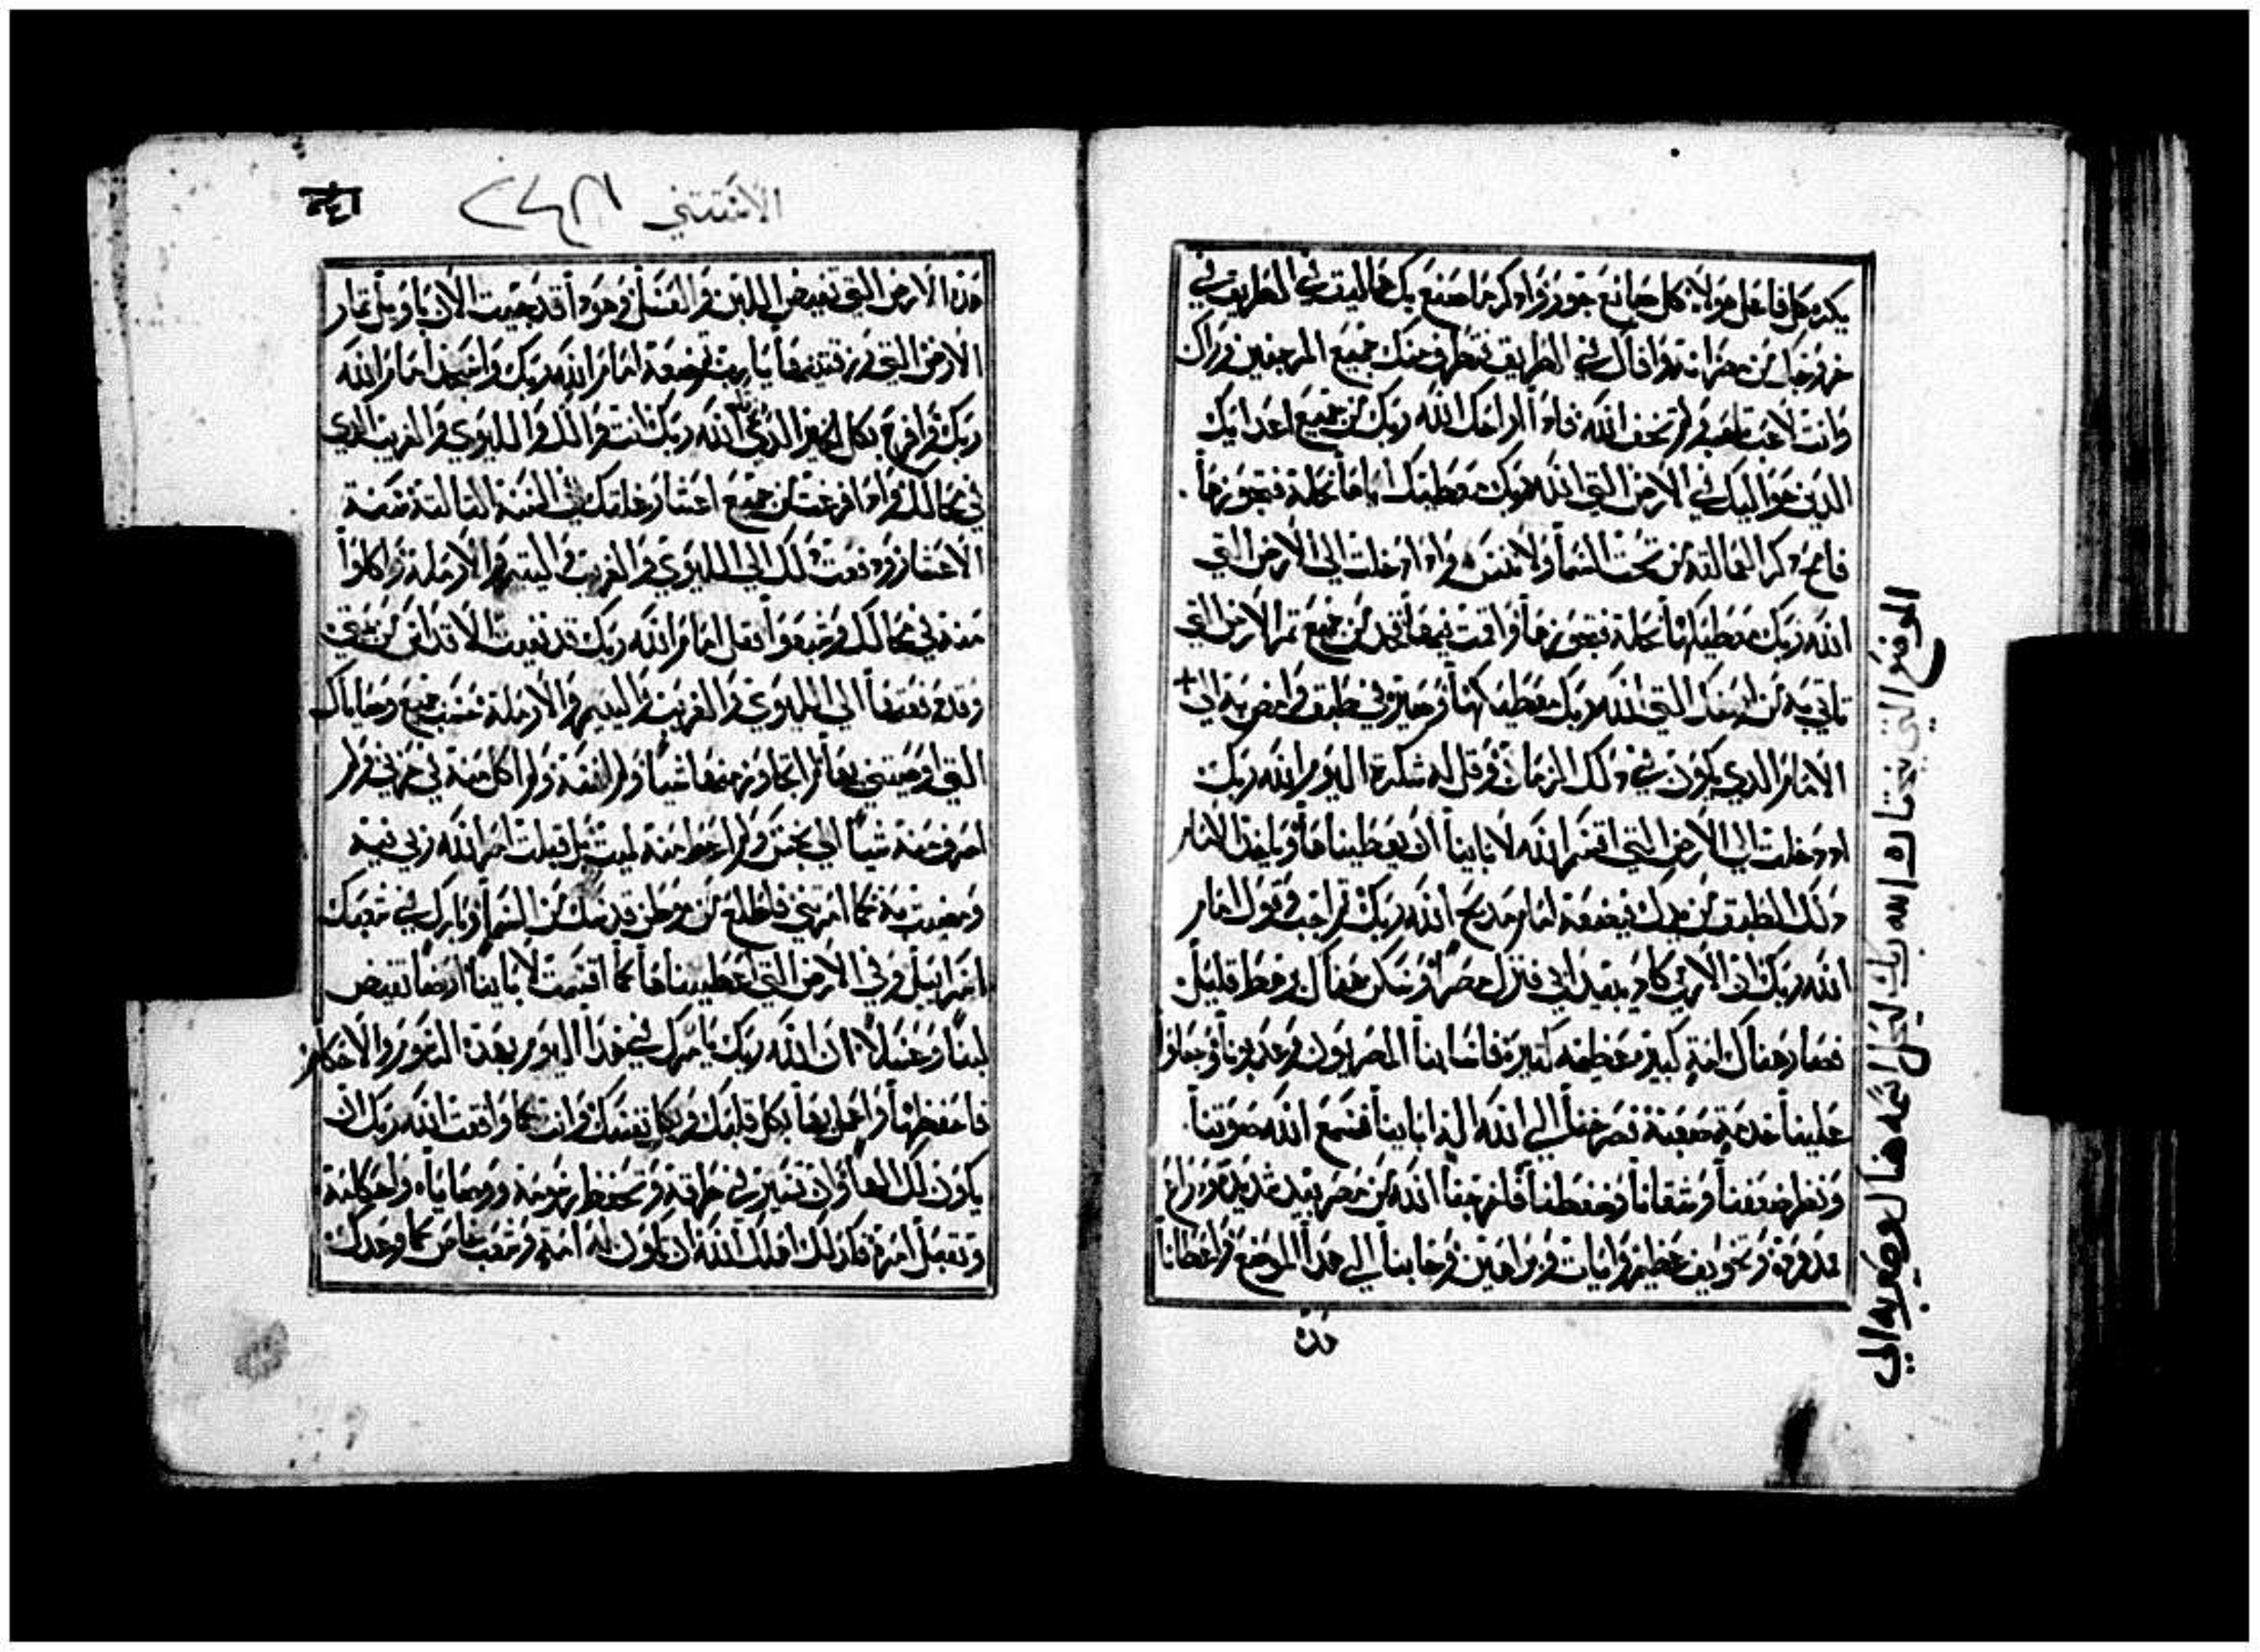 يكره كل فاعل هولاء كل صانع جور واذكر ما صنع بك عماليق في الطريق في
خروجك من مصر انه وافاك في الطريق فتطرف منك جميع المرجفين وراك
وانت لاغب تاعب ولم تخف الله فاذا اراحك الله ربك من جميع اعدايك
الذين حواليك في الارض التي الله ربك معطيك اياها نحلة فتحوزها
فامح ذكر العمالقه من تحت السما ولا تنس واذا دخلت الي الارض التي
الله ربك معطيكها نحلة فتحوزها واقمت فيها فخد من جميع ثمر الارض التي
تاتي به من ارضك التي الله ربك معطيكها وصيره في طبق وامض به الي +
الامام الذي يكون في ذلك الزمان وقل له شكرة اليوم الله ربك
اذ دخلت الي الارض التي اقسم الله لاباينا ان يعطيناها وياخذ الامام
ذلك الطبق من يدك فيضعه امام مذبح الله ربك ثم اجب وقول امام
الله ربك ان الارمي كاد يبيد ابي فنزل مصر وسكن هناك برهط قليل
فصار هناك امة كبيرة عظيمه كثيرة فاسا بنا المصريون وعذبونا وجعلوا
علينا خدمة صعبة فصرخنا الي الله اله اباينا فسمع الله صوتنا
ونظر ضعفنا وشقانا وضغطنا فاخرجنا الله من مصر بيد شديدة وذراع
ممدودة وتخويف عظيم وايات وبراهين وجابنا الي هذا الموضع واعطانا
هذه
الموضع الذي يختاره الله ربك ليحل اسمه هنالك وصيربه الي
الاستثني
هذه الارض التي تفيض اللبن والعسل وهوذا قد جيت الان باويل ثمار
الارض التي رزقتنيها يا رب وتضعه امام الله ربك واسجد امام الله
ربك وافرح بكل الخير الذي اعطاك الله ربك انت والك والليوي والغريب الذي
في محالك واذا فرغت من جميع اعشار غلتك في السنة الثالثة سنة
الاعشار ودفعت ذلك الي الليوي والغريب واليتيم والارملة واكلوا
منه في محالك وشبعوا فقل امام الله ربك قد نفيت الاقداس من بيتي
وقد دفعتها الي الليوي والغريب واليتيم والارملة حسب جميع وصاياك
التي اوصيتني بها لم اتجاوز منها شيا ولم انسه ولم اكل منه في حزني ولم
اصرف منه شيا في نجس ولم اعط منه لميت بل قبلت امر الله ربي فيه
وصنعت به كما امرتني فاطلع من وطن قدسك من السما وبارك في شعبك
اسراييل وفي الارض التي اعطيتناها كما اقسمت لاباينا ارضا تفيض
لبنا وعسلا ان الله ربك يامرك في هذا اليوم بهذه الرسوم والاحكام
فاحفظها واعمل بها بكل قلبك وبكل نفسك وانت كما واقفت الله ربك ان
يكون لك الها وان تسير في طرقه وتحفظ رسومه ووصاياه واحكامه
وتقبل امره فكذلك اهلك الله ان تكون له امة وشعبا خاص كما وعدك